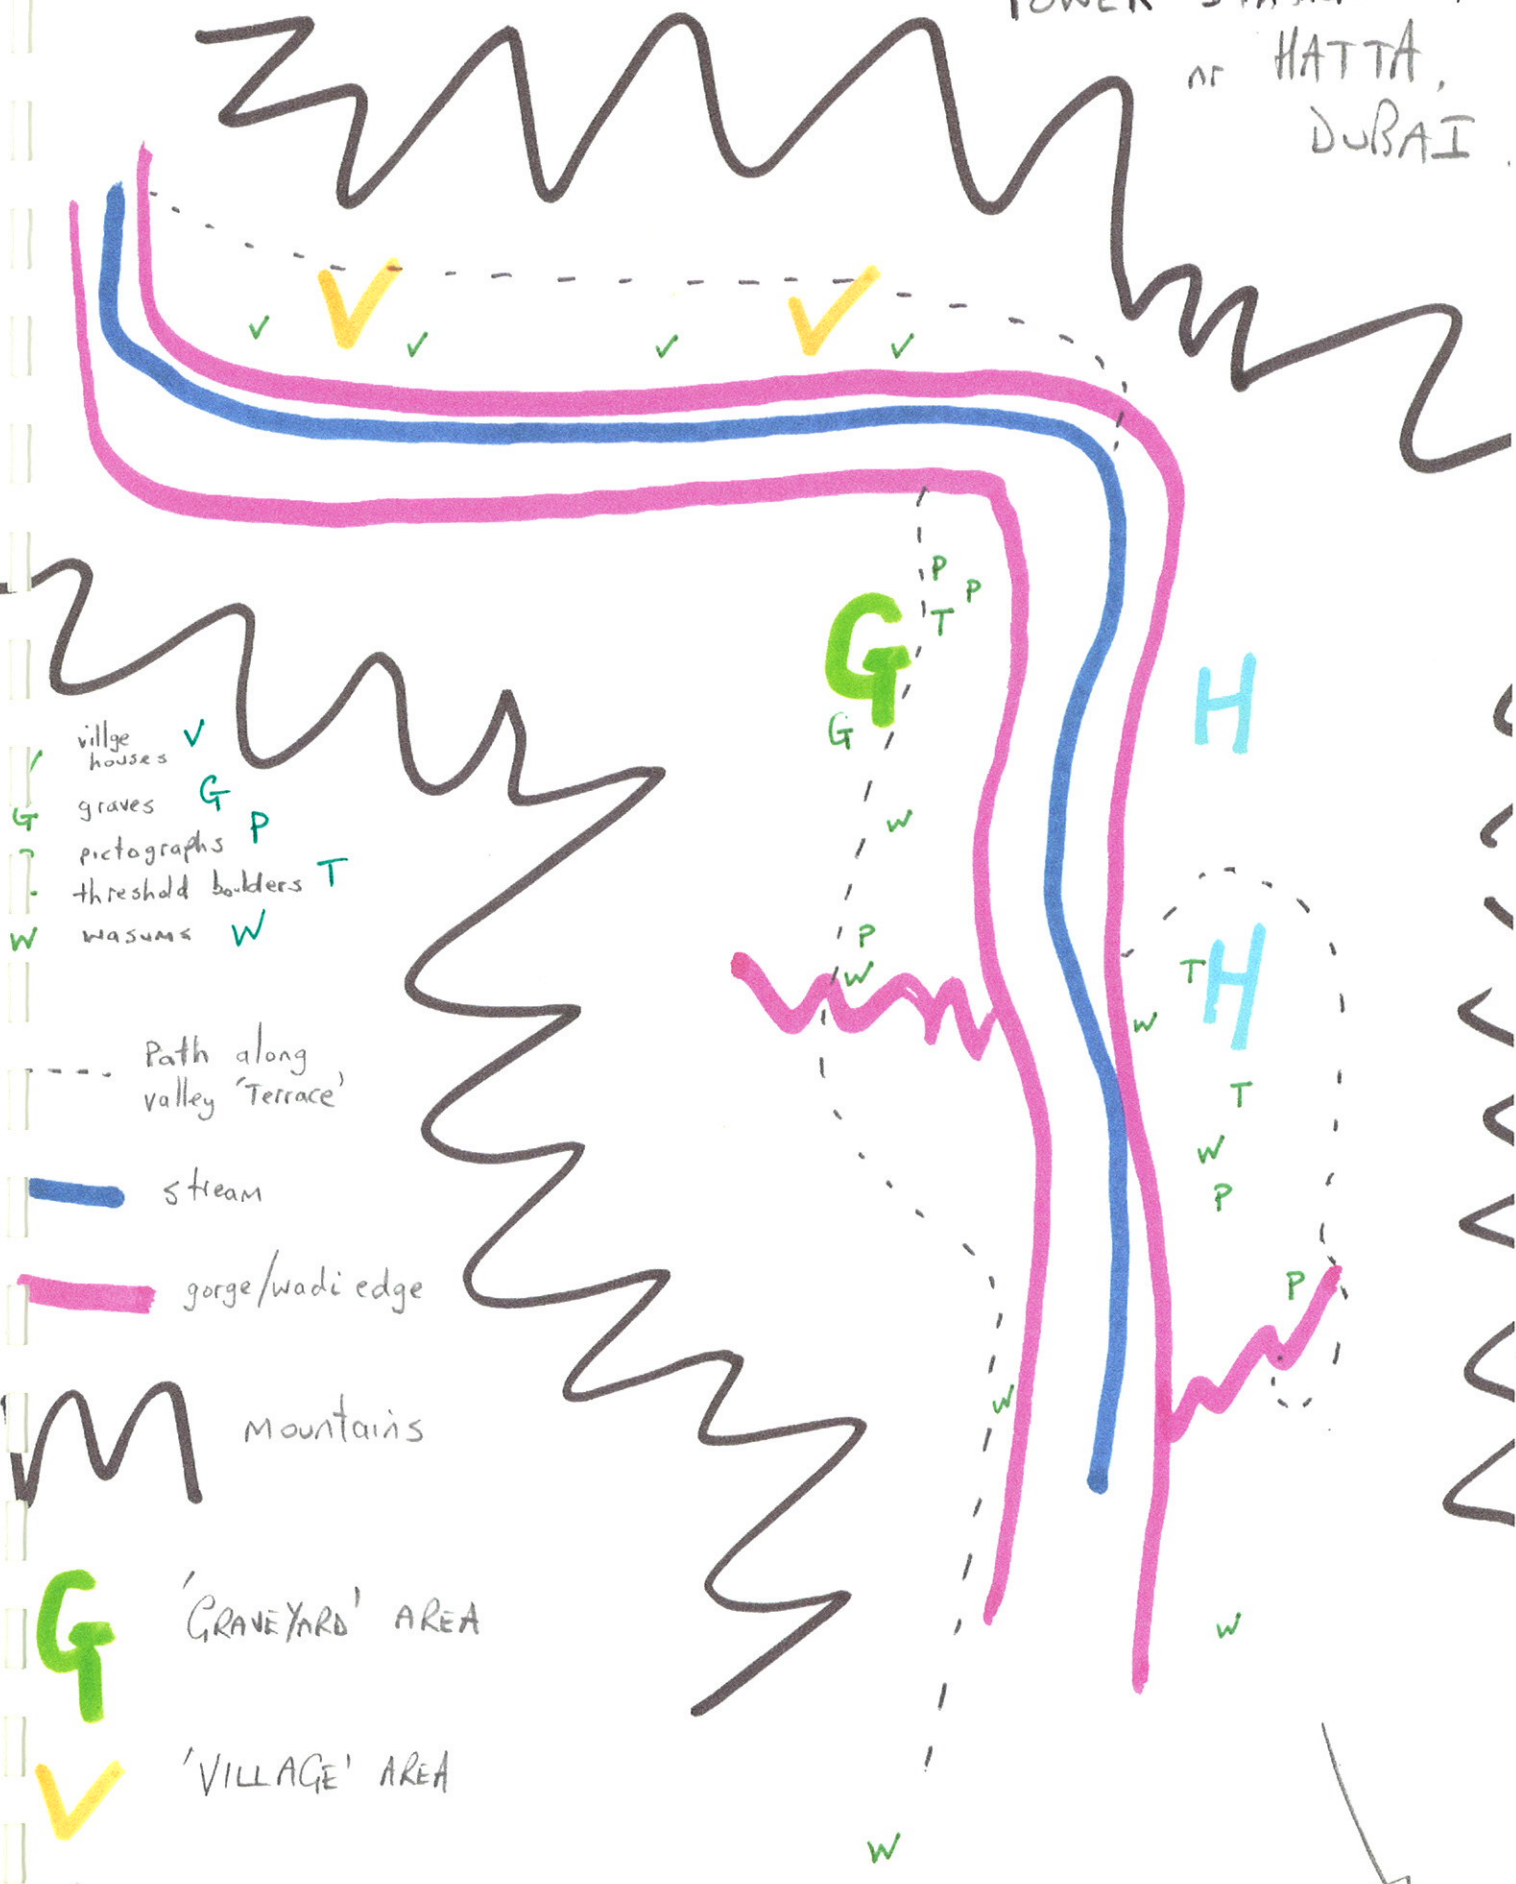 POWER
nr HATTA,
DUBAI.
V
V
v
v
v
v
P
P
T
G
G
H
W
P
W
T
H
W
T
W
P
P
W
W
W
villge V
houses
v
G graves G
pictographs P
threshold boulders T
W wasums W
Path along
valley 'Terrace'
stream
gorge/wadi edge
Mountains
G 'GRAVEYARD' AREA
V 'VILLAGE' AREA